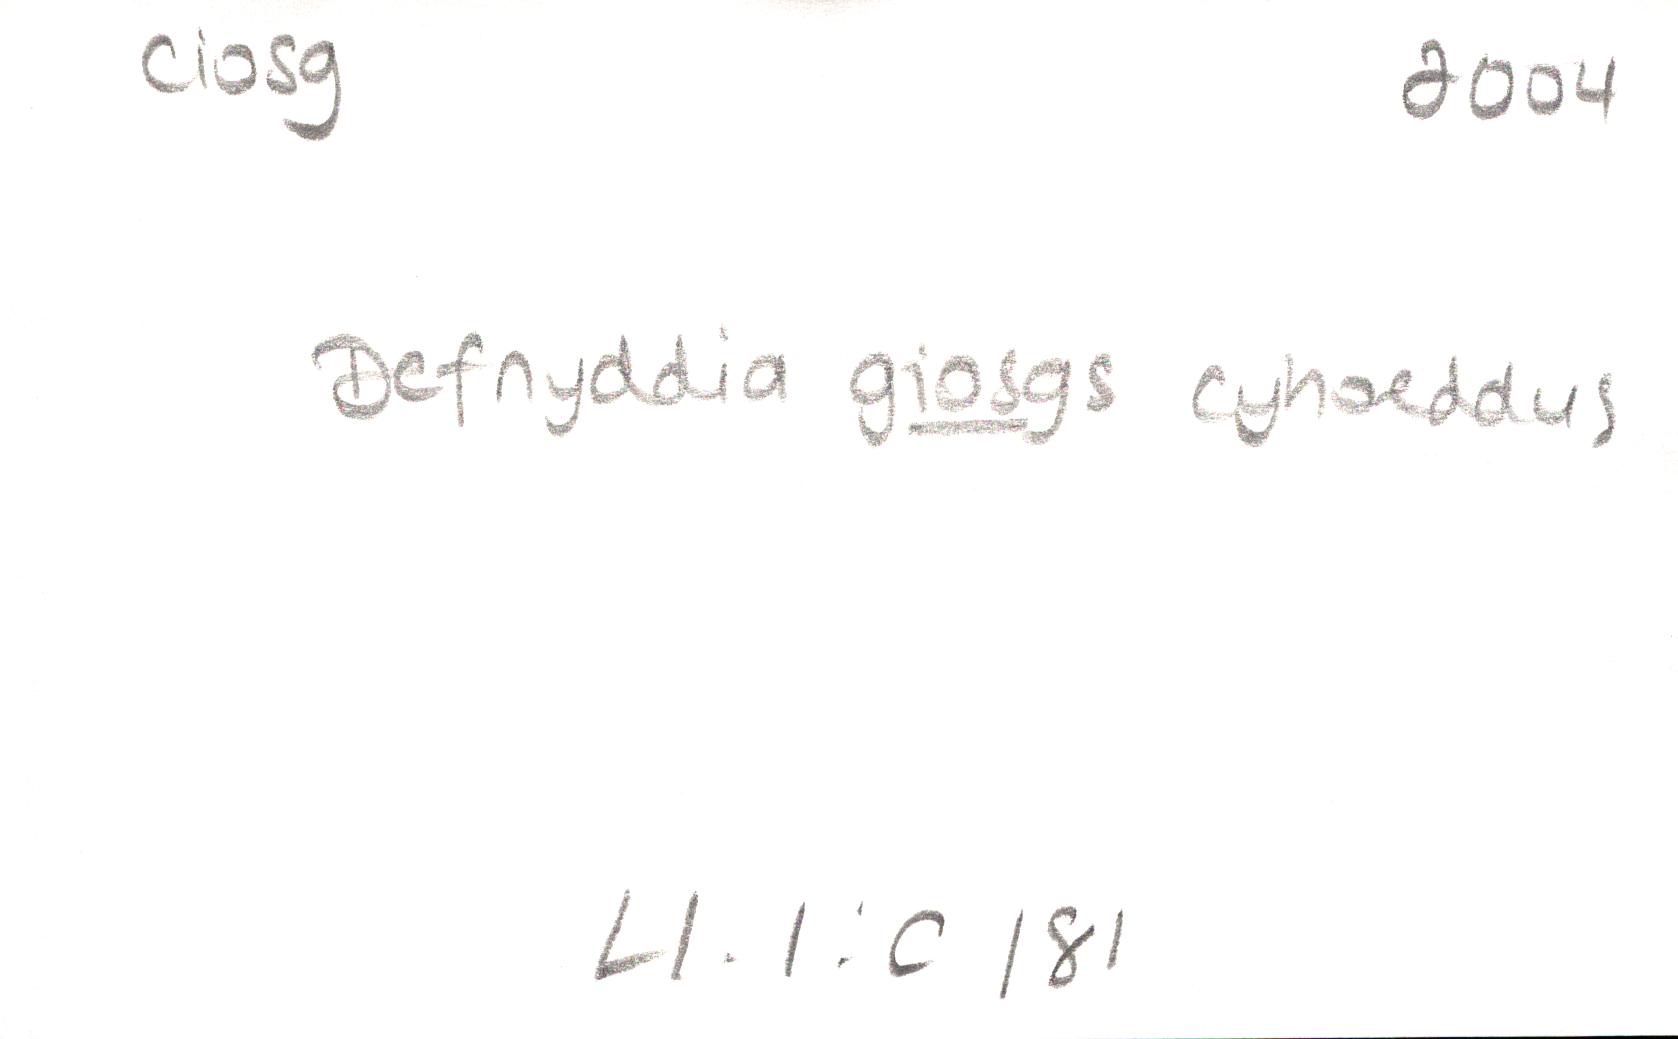 ciosg 2004
Defnyddia giosgs cyhoeddus
Ll. 1 : C 181